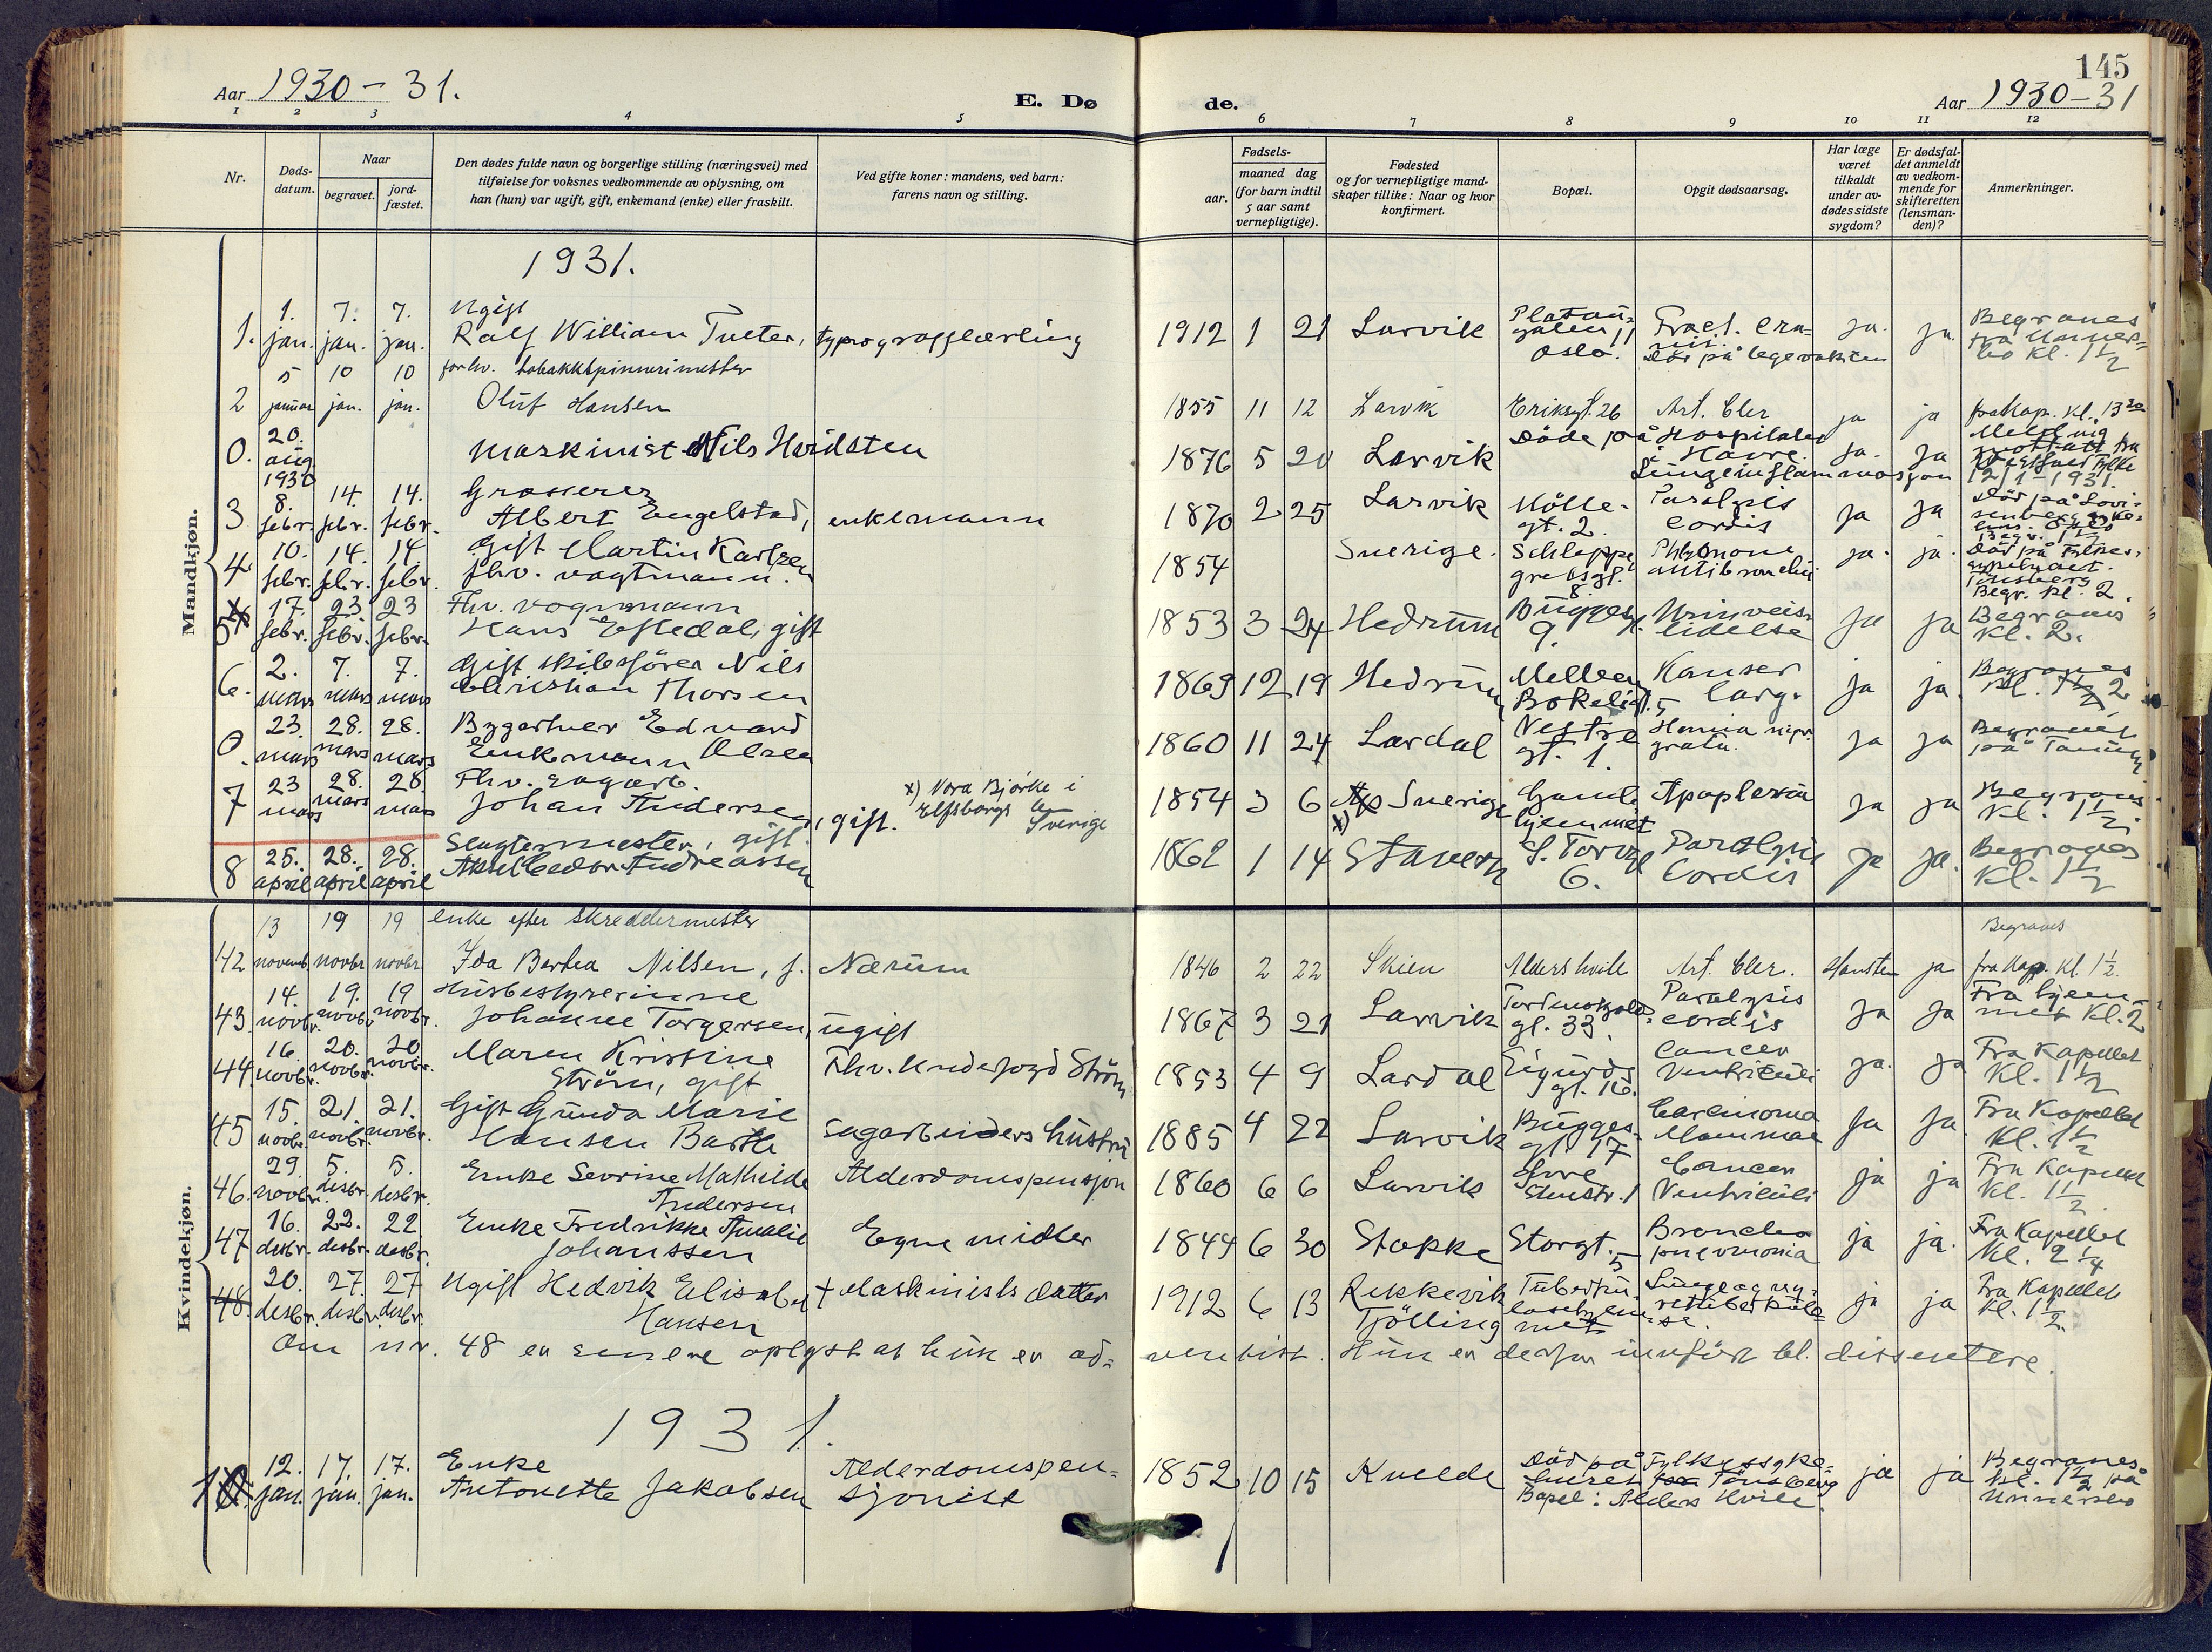 145
Aar 1930-31.
E. Dø
de.
Aar 1930-31
1 2 3 4 5 6 7 8 9 10 11 12
Nr.
Døds-
datum.
Naar
begravet.
jord-
fæstet.
Den dødes fulde navn og borgerlige stilling (næringsvei) med
tilføielse for voksnes vedkommende av oplysning, om
han (hun) var ugift, gift, enkemand (enke) eller fraskilt.
Ved gifte koner: mandens, ved barn:
farens navn og stilling.
Fødsels-
aar.
maaned dag
(for barn indtil
5 aar samt
vernepligtige).
Fødested
og for vernepligtige mand-
skaper tillike: Naar og hvor
konfirmert.
Bopæl.
Opgit dødsaarsag.
Har læge
været
tilkaldt
under av-
dødes sidste
sygdom?
Er dødsfal-
det anmeldt
av vedkom-
mende for
skifteretten
(lensman-
den)?
Anmerkninger.
Mandkjøn.
1931.
1. 1. jan. 7. jan. 7. jan. Ugift
Ralf William Tveter, typograflærling 1912 1 21 Larvik Platan-
gaten 11
Oslo. Fract. cra-
nii.
Død på legevakten ja. ja. Begraves
fra Unners-
bo kl. 1½
2 5 januar 10 jan. 10 jan. forhv. tobakkspinnerimester
Oluf Hansen 1855 11 12 Larvik Eriksgt. 26 Art. Cler ja ja fra Kap. kl. 13 30
0. 20. aug. 1930 Maskinist Nils Hvidsten 1876 5 20 Larvik Døde på Hospitalet
i Havre.
Lungeinflammasjon ja. ja Melding
mottatt fra
Vestfold Fylke
12/1-1931.
3 8. febr. 14. febr. 14. febr. Grosserer
Albert Engelstad, enkemann 1870 2 25 Larvik Mölle-
gt. 2. Paralysis
Cordis ja ja Død på Lovi-
senberg syke-
hus. Oslo
Begr. 1½
4 10. febr. 14. febr. 14. febr. Gift Martin Karlsen
fhv. vagtmann. 1854 Sverige. Schleppe
grellsgt.
8. ja. ja. Død på Fylkes-
sykehuset.
Tönsberg
Begr. kl. 2.
5 17. febr. 23 febr. 23 febr. Fhv. vognmann
Hans Eftedal, gift 1853 3 24 Hedrum Bugges gt.
9. Urinveis-
lidelse ja ja Begraves
kl. 2.
6. 2. mars 7. mars 7. mars Gift skibsfører Nils
Christian Thorsen 1869 12 19 Hedrum Mellom
Bökeligt. 5 Kanser
larg. ja ja. Begraves
kl. 1½ 2
0. 23. mars 28. mars 28. mars Bygartner Edvard
Enkemann Olsen 1860 11 24 Lardal Vestre
gt. 1. ja ja Begravet
på Tanum
7 23 mars 28. mars 28. mars Fhv. sagarb.
Johan Andersen, gift. x) Nora Bjørke i
Elfsborgs len
Sverige 1854 3 6 Sverige x) Gamle
hjemmet Apoplexia ja ja Begraves
kl. 1½
8 25. april 28. april 28. april Slagtermester, gift
Aksel Cedor Andreassen 1862 1 14 Stavern S. Torvgt
6. Paralysis
Cordis ja ja. Begraves
kl. 1½
Kvindekjøn.
42 13 novemb. 19 novbr. 19 novbr. enke efter skreddermester
Ida Berhea Nilsen, f. Nærum 1846 2 22 Skien Aldershvile Art. Cler. Hansten ja Begraves
fra Kap. kl. 1½.
43. 14. novbr. 19. novbr. 19 novbr. Husbestyrerinne
Johanne Torgersen, ugift 1867 3 21 Larvik Tordenskjolds-
gt. 33. Paralysis
cordis ja ja Fra hjem-
met kl. 2
44. 16. novbr. 20. novbr. 20 novbr. Maren Kristine
Ström, gift Fhv. Underfogd Ström 1853 4 9 Lardal Sigurds
gt. 16. Cancer
Ventriculi ja. ja Fra Kapellet
Kl. 1½
45 15. novbr. 21. novbr. 21. novbr. Gift Gunda Marie
Hansen Barth Sagarbeiders hustru 1885 4 22 Larvik Bugges-
gt 17 Carcinoma
Mammae ja ja. Fra Kapellet
Kl. 1½
46. 29. novbr. 5. desbr. 5. desbr. Enke Sevrine Mathilde
Andersen Alderdomspensjon 1860 6 6 Larvik Cancer
Ventriculi ja ja Fra Kapellet
kl. 1½
47 16. desbr. 22. desbr. 22 desbr. Enke Fredrikke Amalie
Johanssen Egne midler 1844 6 30 Stokke Storgt. 5 Broncho
pneumonia ja ja. Fra Kapellet
Kl. 2¼
48. 20. desbr. 27. desbr. 27 desbr. Ugift Hedvik Elisabet
Hansen + Maskinists datter 1912 6 13 Rekkevik
Tjölling Tuberku-
losehjem-
met Lunge og ny-
retuberkulo-
se. ja ja Fra Kapellet
kl. 1½.
Om nr. 48 er senere oplyst at hun er ad-
ventist. Hun er derfor innfört bl. dissentere.
1931.
1 12. jan. 17. jan. 17. jan. Enke
Antonette Jakobsen Alderdomspen-
sjonist 1852 10 15 Kvelde Död på Fylkessyke-
huset Tönsberg
Bopel: Alders Hvile ja ja Begraves
kl. 1½ på
Unnersbo